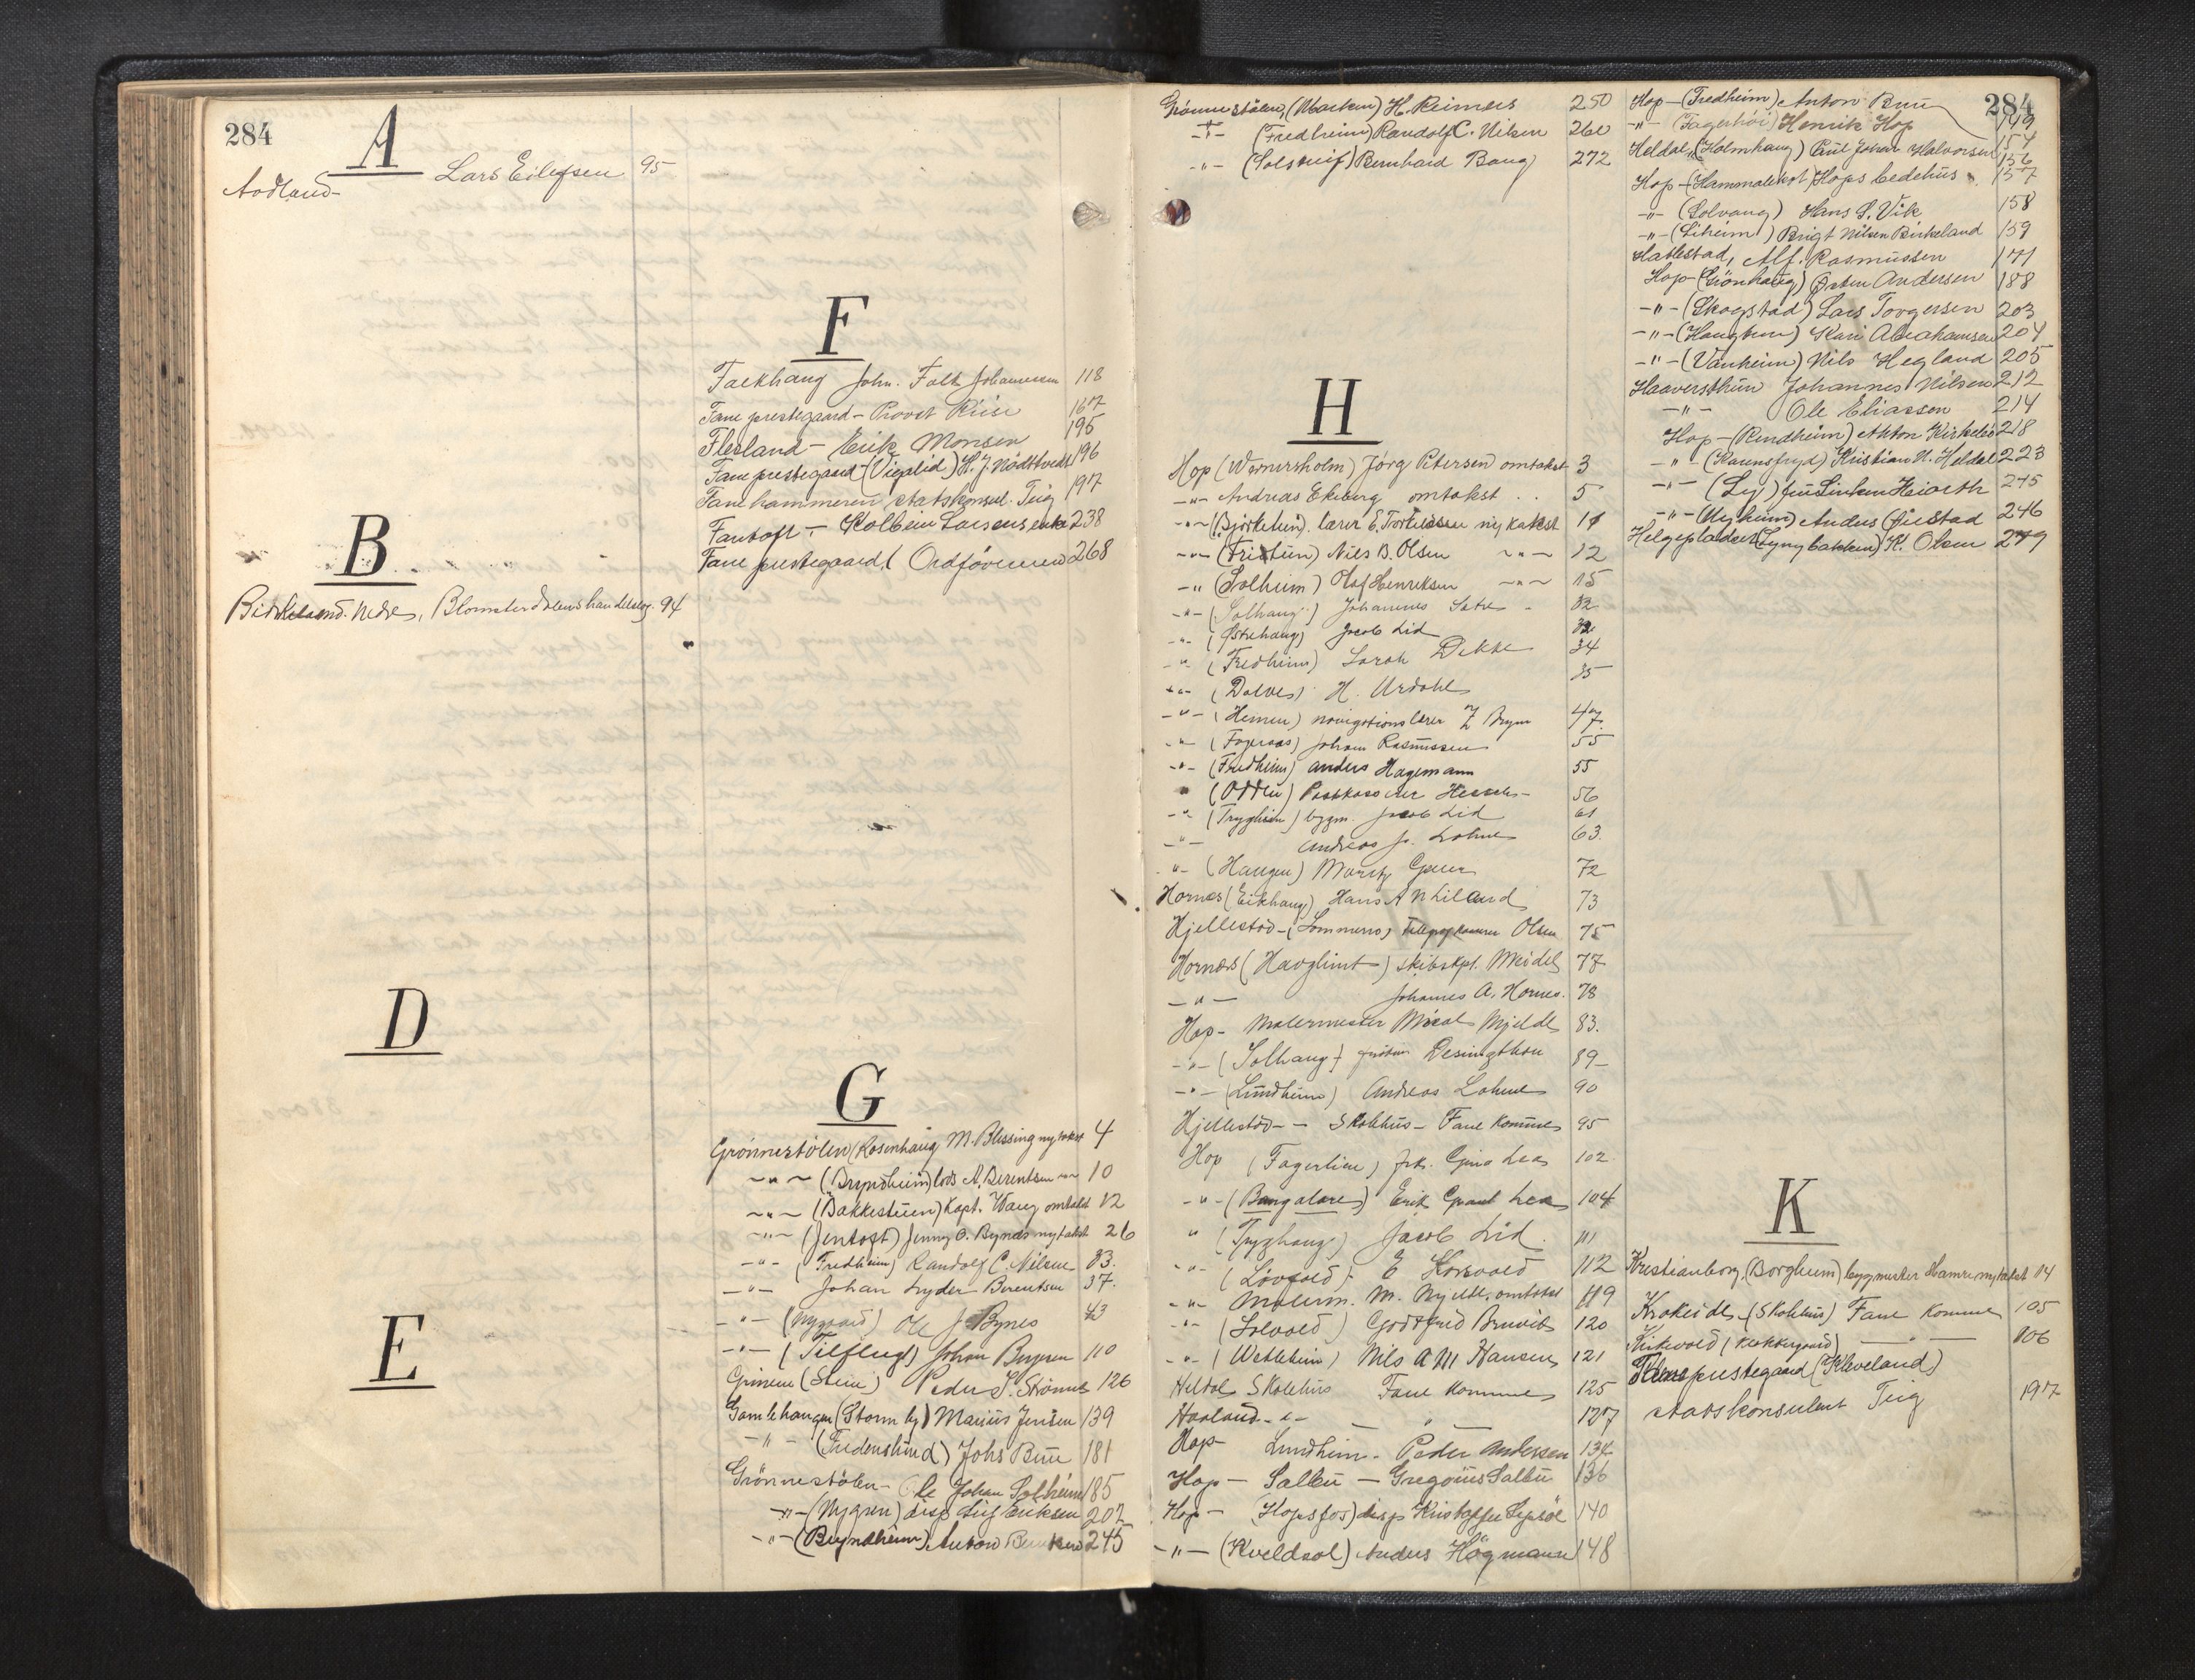 284
A
Aadland- Lars Eilefsen 95
B
Birkeland. Nedre, Blomsterdalens handelslag. 94
D
E
F
Faekhaug John. Falk Johannessen 118
Fane prestegaard - Provst Riise 167
Flesland - Erik Monsen 195
Fane prestegaard - (Vieglid) H. J. Nödtvedt 196
Fanehammeren statskonsul. Teig 197
Fantoft - Kolbein Larsens enke 238
Fane prestegaard, ( Ordføreren 268
G
Grønnestølen (Rosenhaug M. Blessing nytakst 4
-"- (Bryndheim) lods A. Berentsen -"- 10
-"- (Bakkestuen) Kapt. Waug omtakst 12
-"- (Jentoft) Jenny O. Bynes nytakst 26
-"- (Fredheim) Randolf C. Nilsen 33.
-"- Johan Lyder Berentsen 37.
-"- (Nygaard) Ole J. Bynes 43
-"- (Tilflugt) Johan Byrgesen 110
Grimen (Steine) Peder S. Strømnes 126
Gamlehaugen (Storm ly) Marius Jensen 139
-"- (Fredenslund) Johs Bruu 181
Grönnestölen - Ole Johan Solheim 185
-"- (Nygren) disp Leif Eriksen 207
-"- (Bryndheim) Anton Berntsen 245
Grönnestølen, (Marken) H. Reimers 250
-"- (Fredheim) Randolf C. Nilsen 260
-"- (Solstreif) Bernhard Baug 272
H
Hop (Wernersholm) Jörg Petersen omtakst 3
-"- Andreas Ekeberg omtakst . . 5
-"- (Björketun). lærer E. Torkildsen nytakst 11
-"- (Fristun) Nils B. Olsen -"- 12
-"- (Solheim) Olaf Henriksen -"- 15
-"- (Solhaug) Johannes Sætre - 32
-"- (Østrehaug) Jacob Lid 32
-"- (Fredheim) Sarah Dekke 34
-"- (Dalves) H. Urdahl 35
-"- (Hemen) navigationslærer Z Bryn 47.
-"- (Fageraas) Johan Rasmussen 55
-"- (Fredheim) Anders Hagemann 55
" (Odden) Postkasserer Hessel- 56
-"- (Trygheim) bygm. Jacob Lid 61
-"- Andreas Jr. Lohne 63.
-"- (Haugen) Moritz Greer 72
Hornæs (Eikhaug) Hans A Nhiland 73
Hjellestad - (Sommerro) Telegrafkasserer Olsen 75
Hornæs (Havglimt) skibskpt. Meidel 77
-"- Johannes A. Hornes. 78
Hop - Malermester Mikal Mjelde 83.
-"- (Solhaug) Desington 89-
-"- (Lundheim) Andreas Lohne 90
Hjellestad - - Skolehus - Fane Komune 95
Hop (Fagerlien) frk. Gina Lea 102
-"- (Bangalore) Erik Grant Lea 104
" (Tryghaug) Jacob Lid. 111
-"- (Løvvold) E Korsvold 112
-"- Malerm. M. Mjelde. omtakst 119
-"- (Solvold) Godtfred Brunvik 120
-"- (Wetleheim) Nils A M Hansen 121
Heldal Skolehus Fane Komune 125
Haaland -"- - " - 127
Hop - Lundheim. Peder Andersen 134
Hop - Salbu - Gregorius Salbu 136
Hop - (Hopsfos) disp Kristoffer Lepsöe 140
-"- (Kveldsol) Anders Högmann 148
284
Hop - (Fredheim) Anton Bruu 149
-"- (Fagerhöi) Henrik Hop 154
Heldal, (Holmhaug) Paul Johan Halvorsen 156
Hop - (Hammarslot) Hops bedehus . 157
-"- (Solvang) Hans S. Vik 158
-"- (Liheim) Brigt Nilsen Birkeland 159
Hatlestad, Alf. Rasmussen 171
Hop - (Grönhaug) Østen Andersen 188
-"- (Skogstad) Lars Torgersen 203
-"- (Haugtun) Kari Abrahamsen 204
-"- (Vanheim) Nils Hegland 205
Haaversthun Johannes Nilsen 212
-"- Ole Eliassen 214
Hop - (Rendheim) Anton Kirkebö 218
-"- (Karensfryd) Kristian N. Heldal 223
-"- (Ly) fru Linken Heiarth 245
-"- (Nyheim) Anders Öiestad 246
Helgeplasset (Lyngbakken) K. Olsen 249
K
Kristianborg. (Borgheim) byggmester Hamre nytakst 14
Krokeide - (Skolehus) Fane Komune 105
Kirkevold (Kirkkegaard) - " - 106
Fane prestegaard (Kleveland)
statskonsulent Teig 197